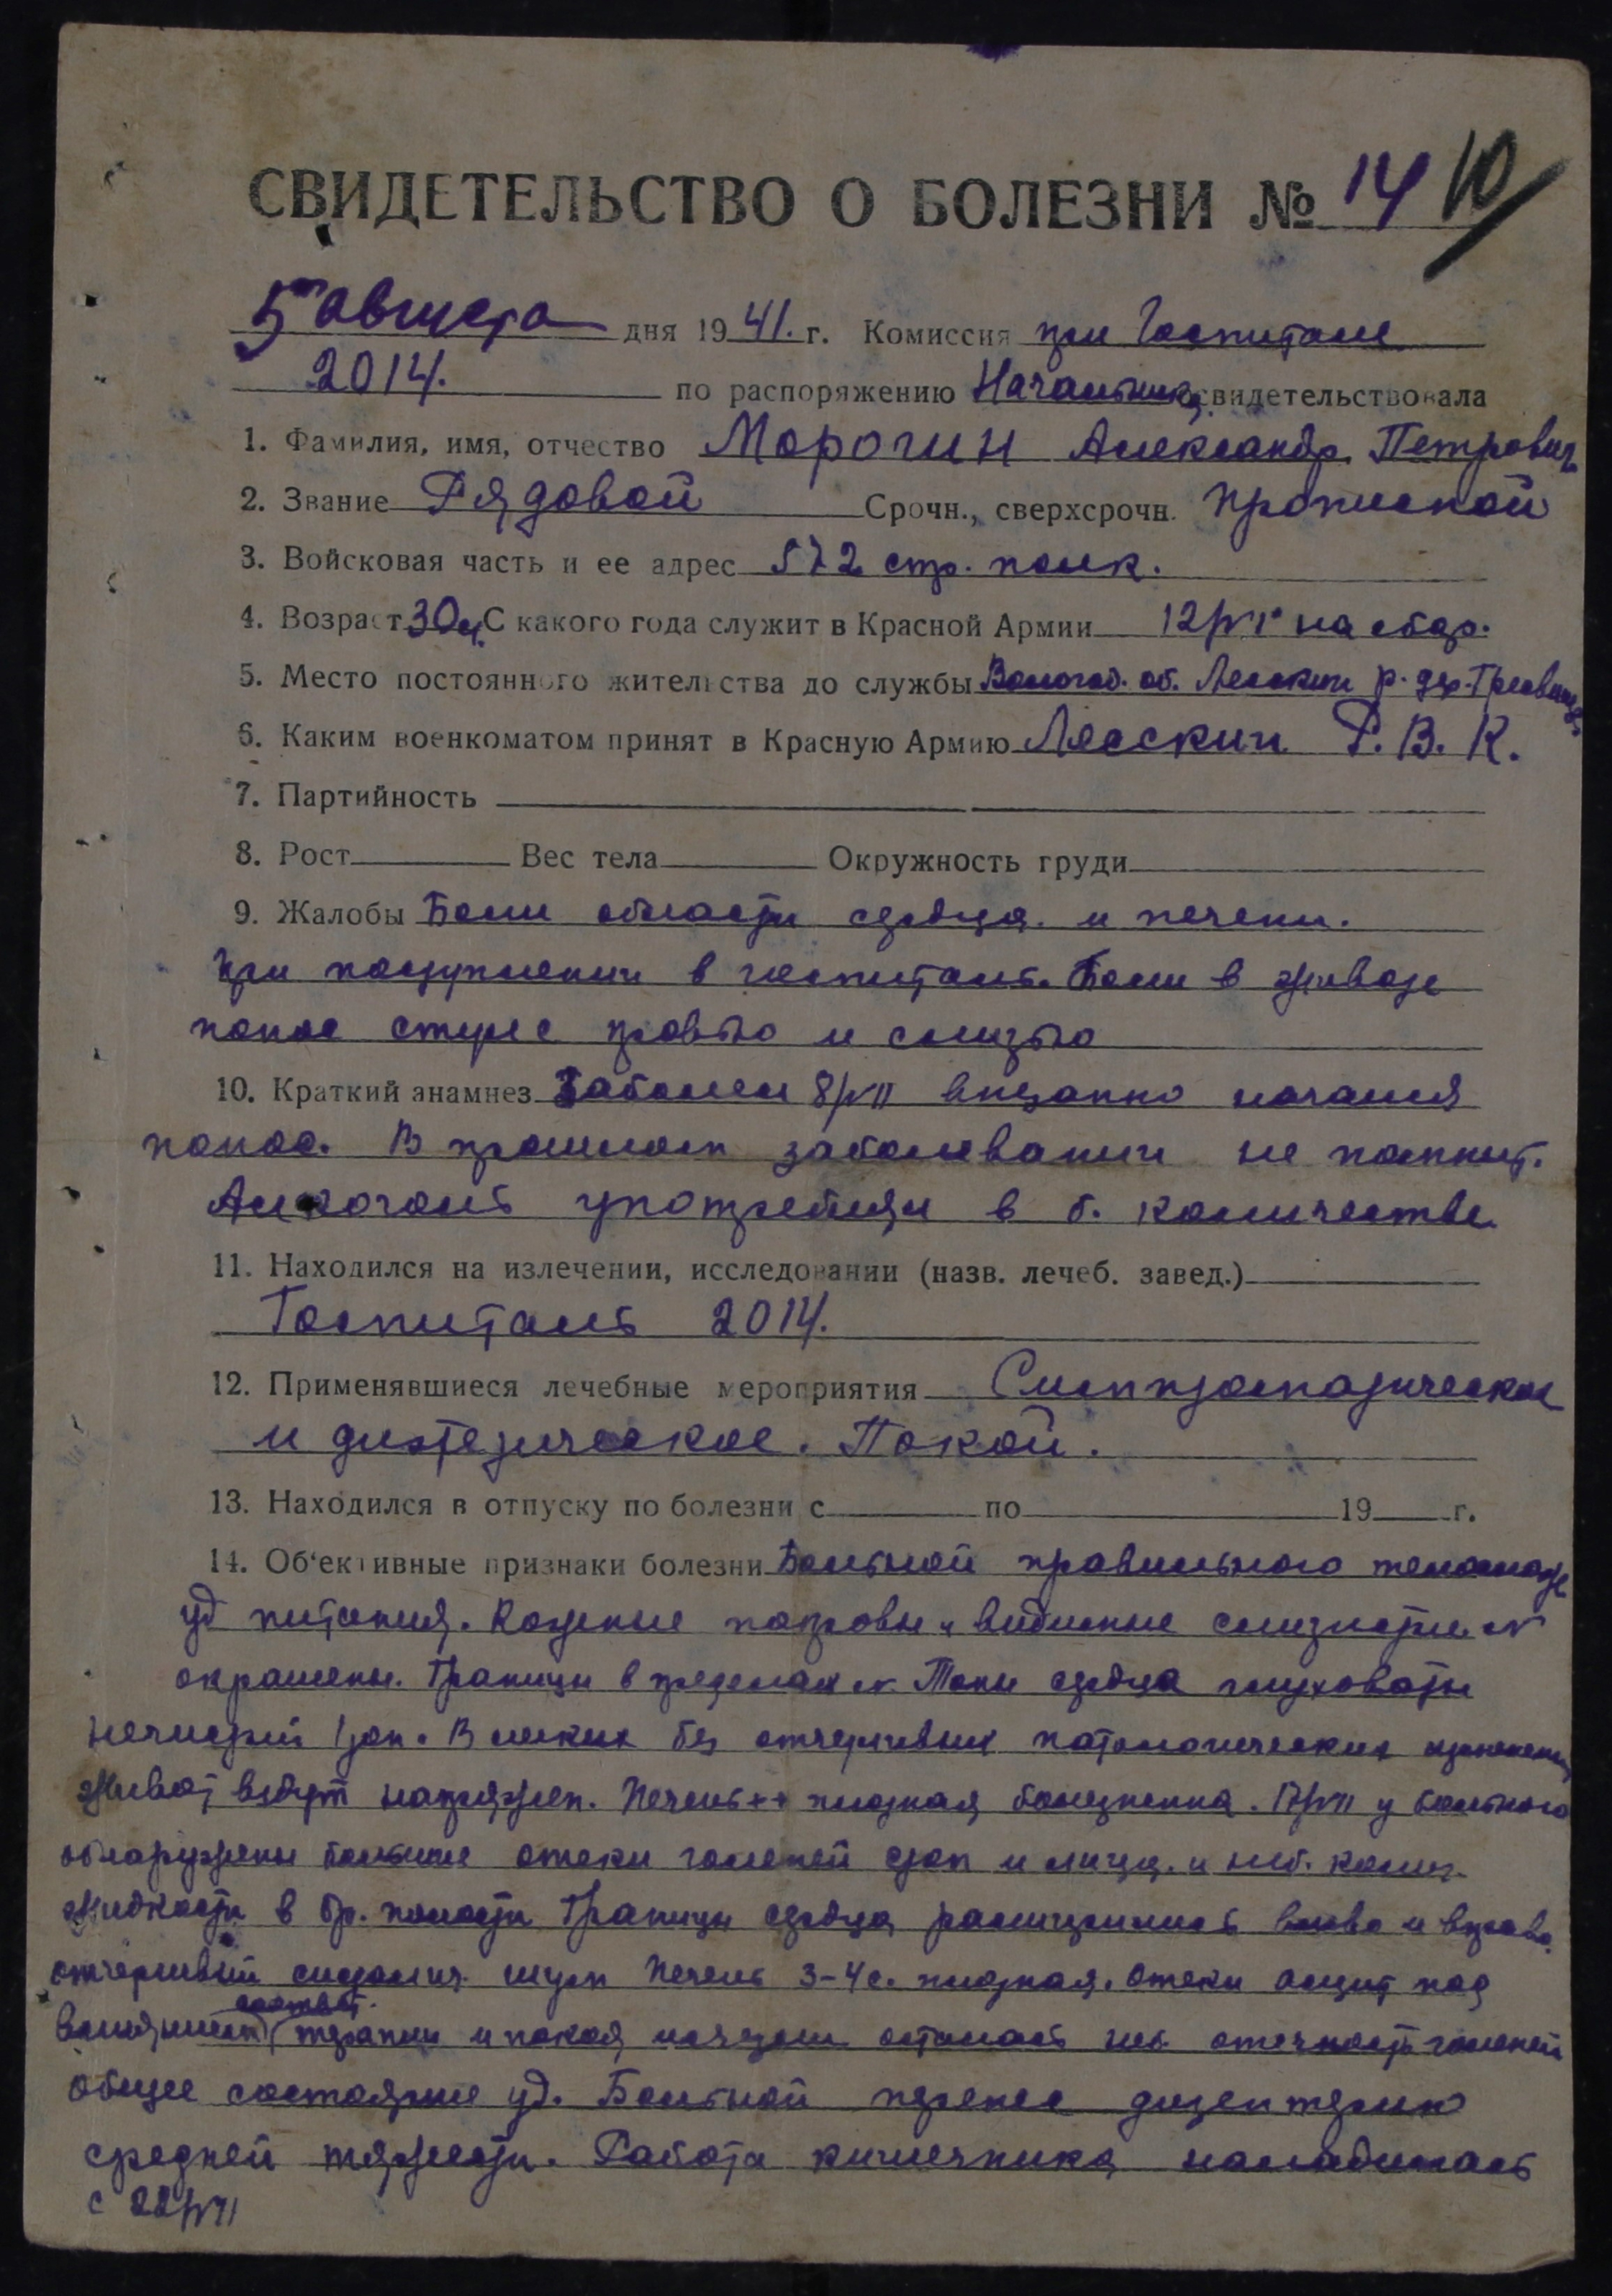 СВИДЕТЕЛЬСТВО О БОЛЕЗНИ № 14 10/
5 августа дня 1941. г. Комиссия при Госпитале
2014. по распоряжению Начальника свидетельствовала
1. Фамилия, имя, отчество Морогин Александр Петрович
2. Звание Рядовой Срочн., сверхсрочн. Приписной
3. Войсковая часть и ее адрес 572 стр. полк.
4. Возраст 30 л. С какого года служит в Красной Армии 12/VI на сбор.
5. Место постоянного жительства до службы Вологод. об. Лесский р. дер.
6. Каким военкоматом принят в Красную Армию Лесский Р. В. К.
7. Партийность
8. Рост Вес тела Окружность груди
9. Жалобы Боли области сердца. и печени.
При поступлении в госпиталь. Боли в животе
понос стул с кровью и слизью
10. Краткий анамнез Заболел 8/VII внезапно начался
понос. В прошлом заболеваний не помнит.
Алкоголь употреблял в б. количестве
11. Находился на излечении, исследовании (назв. лечеб. завед.)
Госпиталь 2014.
12. Применявшиеся лечебные мероприятия Симптоматическое
и диэтетическое. Покой.
13. Находился в отпуску по болезни с по 19 г.
14. Об'ективные признаки болезни Больной правильного телослож
уд питания. Кожные покровы и видимые слизистые N
окрашены. Границы в пределах N. Тоны сердца глуховаты
нечистый I тон. В легких без отчетливых патологических изменений
живот вздут напряжен. Печень ++ плотная болезненна. 17/VII у больного
обнаружены большие отеки голеней стоп и лица. и неб. колич.
жидкости в бр. полости Границы сердца расширились влево и вправо.
отчетливый систолич. шум Печень 3-4 с. плотная. Отеки асцит под
влиянием соответ. терапии и покоя исчезли осталась неб. отечность голеней
Общее состояние уд. Больной перенес дизентерию
средней тяжести. Работа кишечника наладилась
с 22/VII